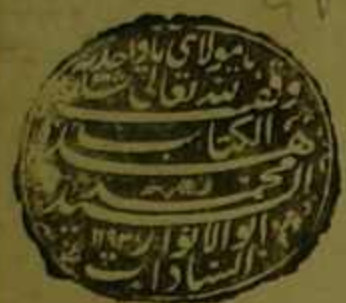 يا مولاي يا واحد
وقف لله تعالى
الكتاب
هذ
محمد
ابو الانوار ١١٩٣
السادات